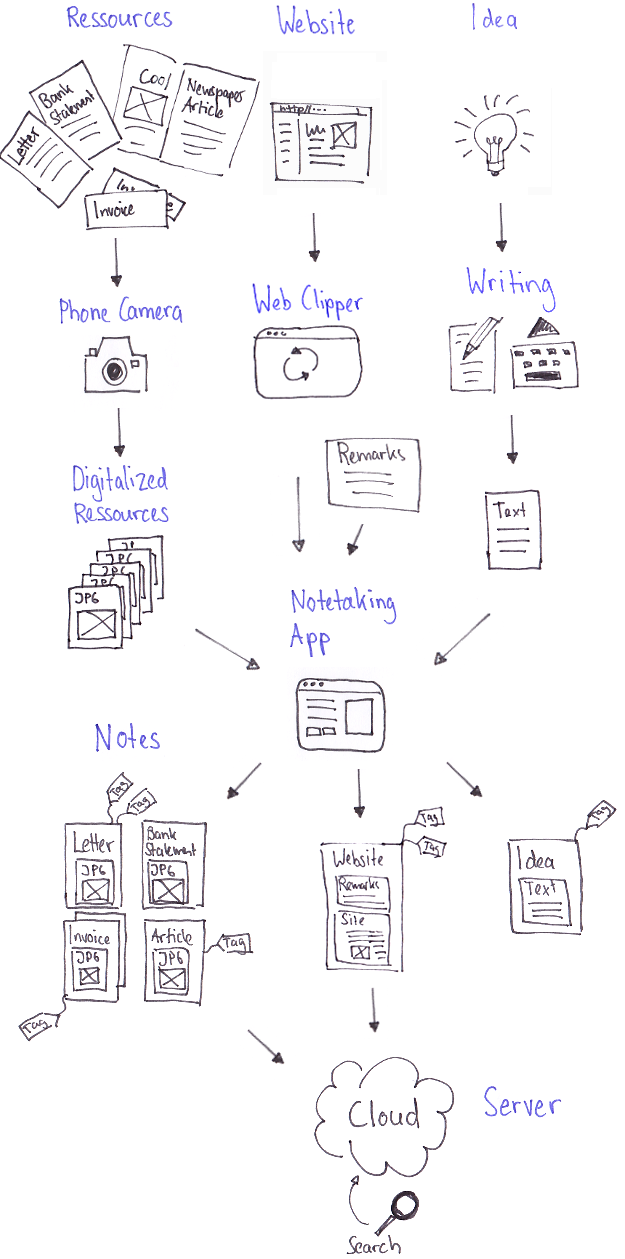 Ressources
Website
Idea
Bank
Statement
Letter
Cool
Newspaper
Article
Invoice
http://...
Phone Camera
Web Clipper
Writing
Digitalized
Ressources
Remarks
Text
JPG
Notetaking
App
Notes
Tag
Tag
Letter
JPG
Bank
Statement
JPG
Invoice
JPG
Article
JPG
Tag
Tag
Tag
Tag
Website
Remarks
Site
Tag
Idea
Text
Cloud
Server
Search